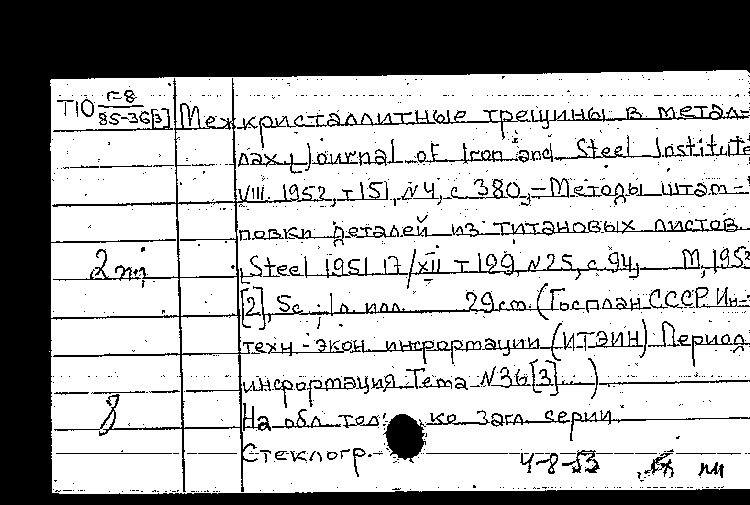 Т10 Г-8
85-36[3] Межкристаллитные трещины в метал-
лах, Journal of Iron and Steel Institute
VIII. 1952, т 151, N4, с. 380,–Методы штам-
повки деталей из титановых листов
2 пд , Steel 1951 17/XII т 199, N25, с. 94, М, 195
[2], 5с., 1 л. илл. 29 см. (Госплан СССР. Ин-
техн-экон. информации (ИТЭИН) Период
информация. Тема N36[3]..)
8 На обл. только загл. серии.
Стеклогр.
4-8-53